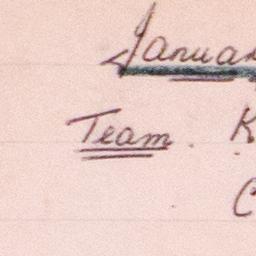 Januar
Team. K
C